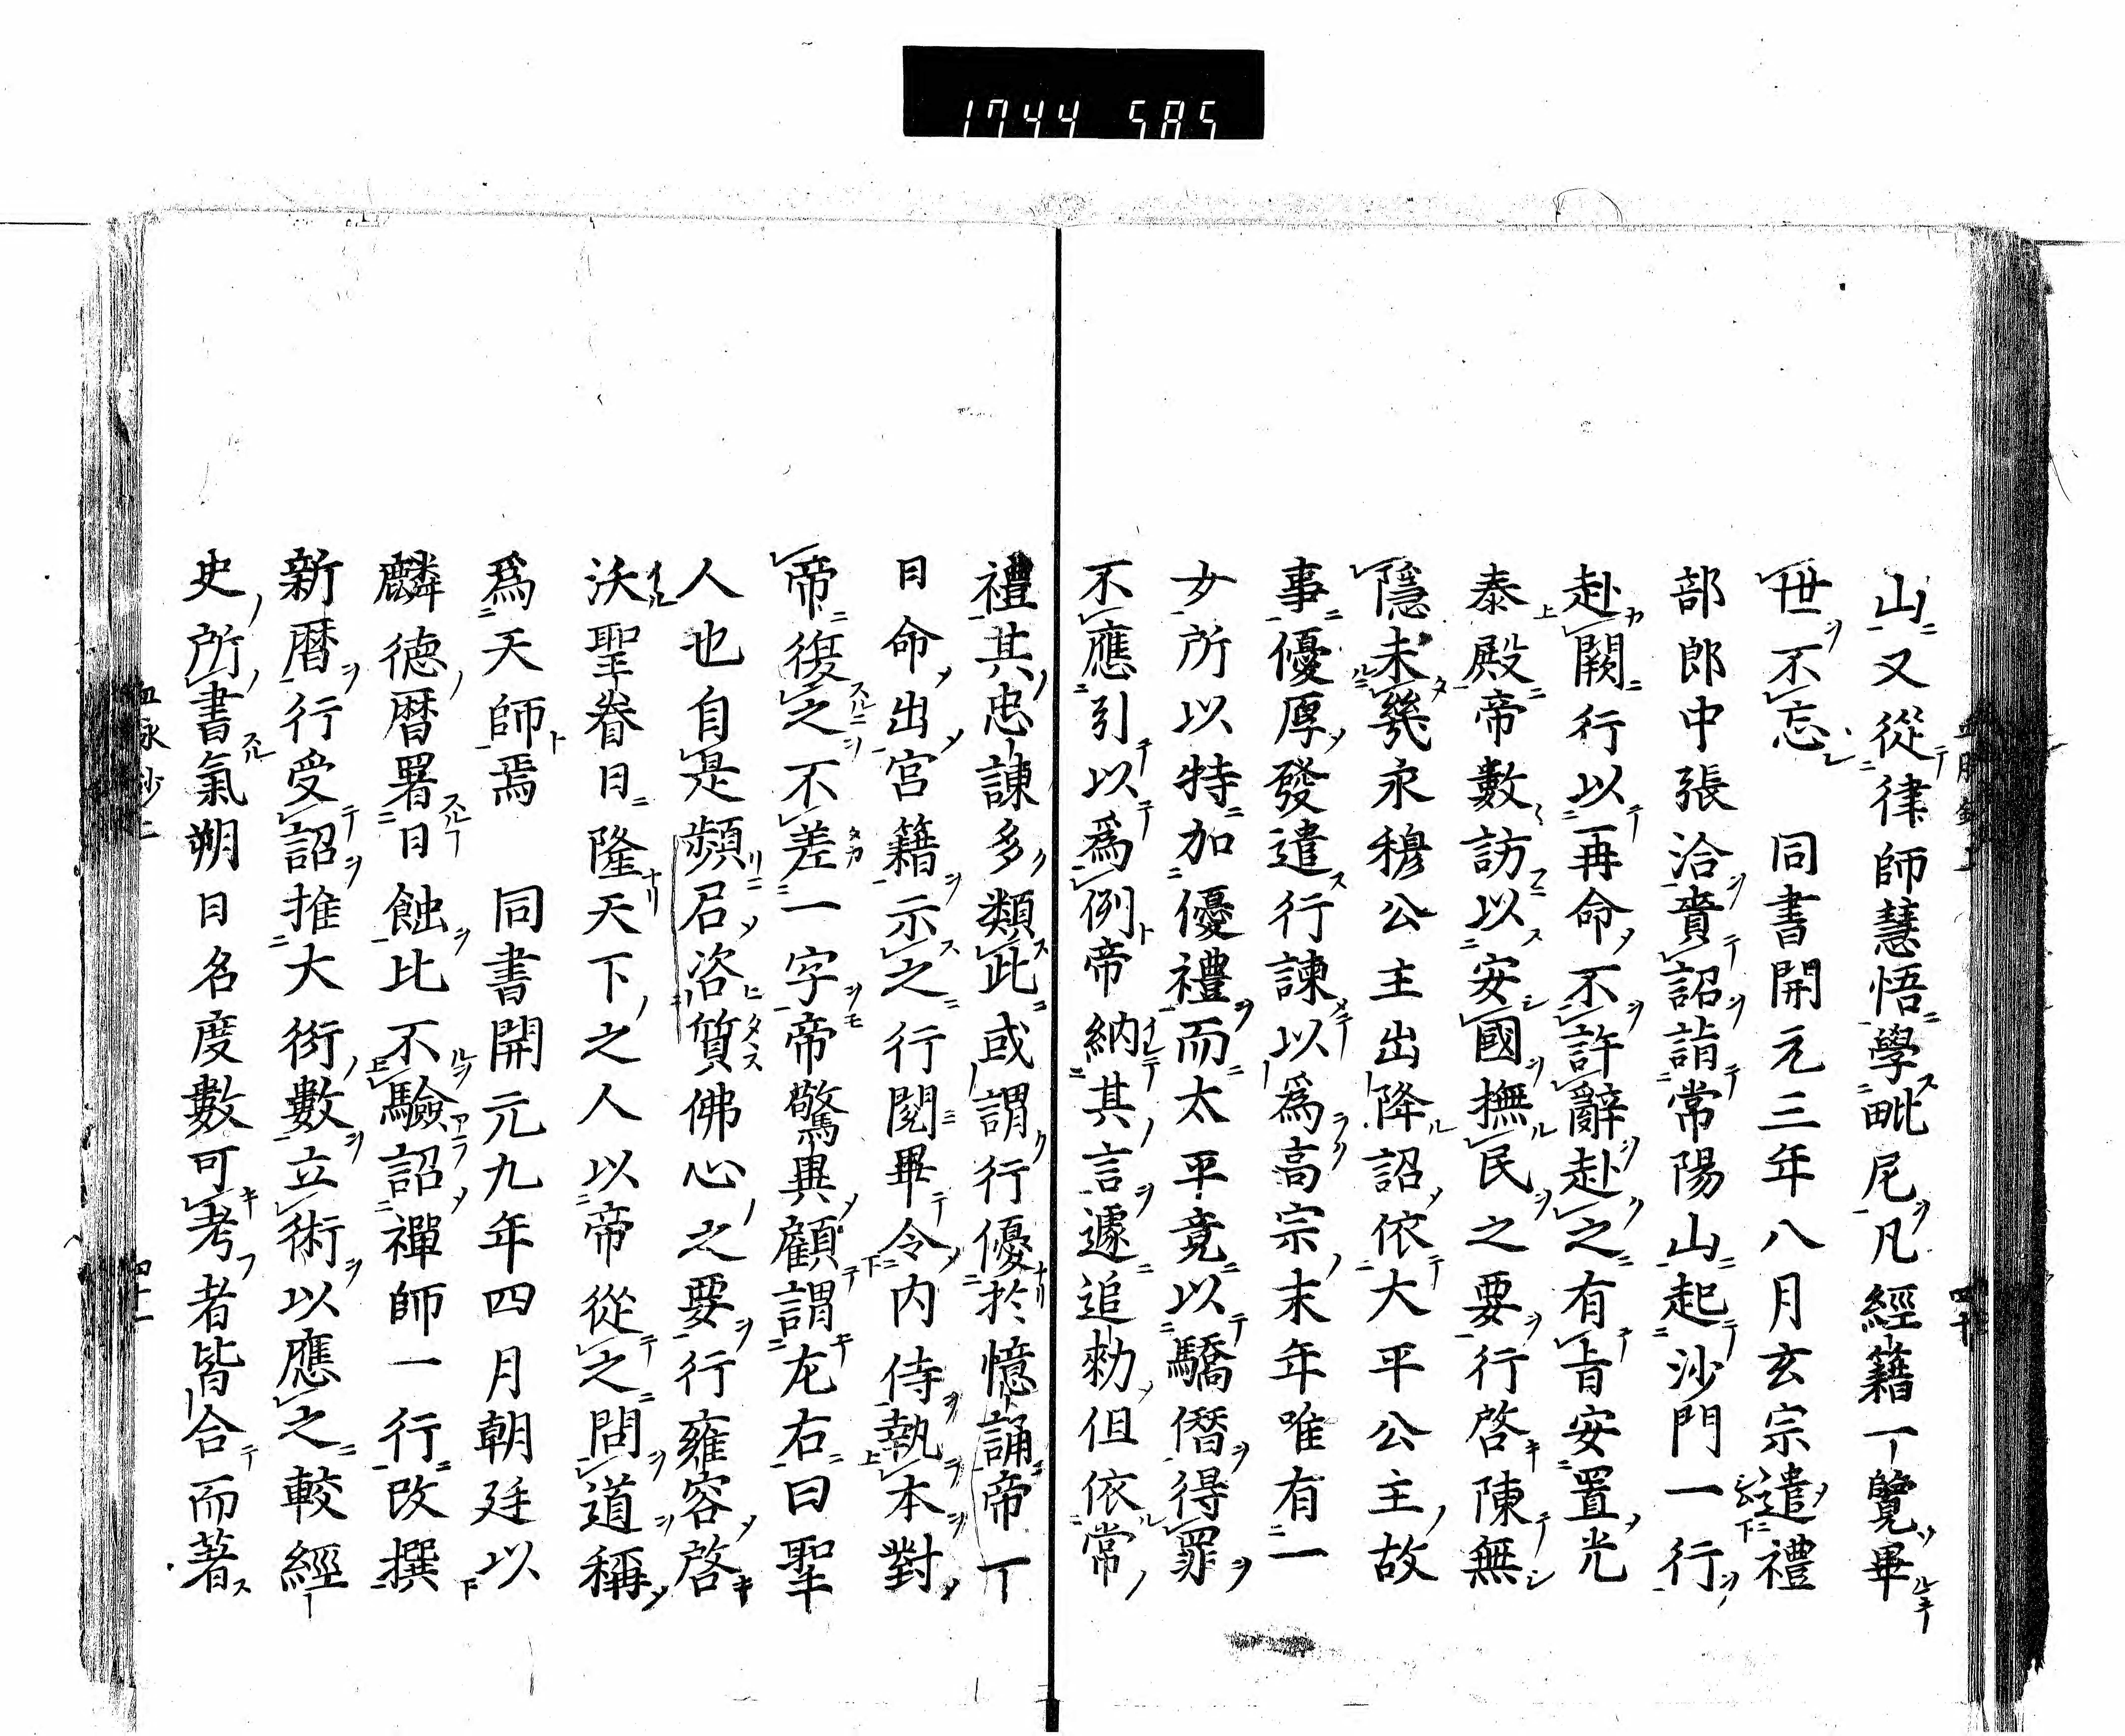 1744 585
山又從律師慧悟學毗尼凡經籍一覽畢
世不忘　同書開元三年八月玄宗遣禮
部郎中張洽賷詔詣常陽山起沙門一行
赴闕行以再命不許辭赴之有旨安置光
泰殿帝數訪以安國撫民之要行啓陳無
隱未幾永穆公主出降詔依大平公主故
事優厚發遣行諫以爲高宗末年唯有一
女所以特加優禮而太平竟以驕僭得罪
不應引以爲例帝納其言遽追勑但依常
禮其忠諫多類此或謂行優於憶誦帝一
日命出宮籍示之行閲畢令内侍執本對
帝復之不差一字帝驚異顧謂左右曰聖
人也自是頻召咨質佛心之要行雍容啓
沃聖眷日隆天下之人以帝從之問道稱
爲天師焉　同書開元九年四月朝廷以
麟德曆署日蝕比不驗詔禪師一行改撰
新曆行受詔推大衍數立術以應之較經
史所書氣朔日名度數可考者皆合而著